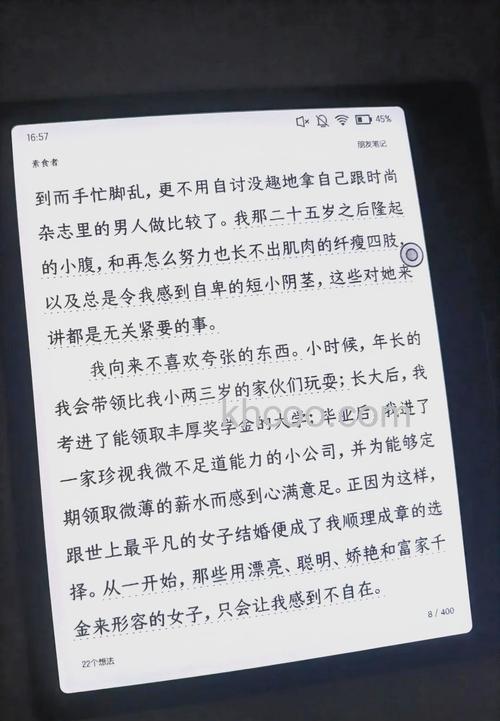 16:57
45%
素食者
朋友笔记
到而手忙脚乱，更不用自讨没趣地拿自己跟时尚
杂志里的男人做比较了。我那二十五岁之后隆起
的小腹，和再怎么努力也长不出肌肉的纤瘦四肢，
以及总是令我感到自卑的短小阴茎，这些对她来
讲都是无关紧要的事。
我向来不喜欢夸张的东西。小时候，年长的
我会带领比我小两三岁的家伙们玩耍；长大后，我
考进了能领取丰厚奖学金的大学；毕业后，我进了
一家珍视我微不足道能力的小公司，并为能够定
期领取微薄的薪水而感到心满意足。正因为这样，
跟世上最平凡的女子结婚便成了我顺理成章的选
择。从一开始，那些用漂亮、聪明、娇艳和富家千
金来形容的女子，只会让我感到不自在。
22个想法
8 / 400
khooo.com